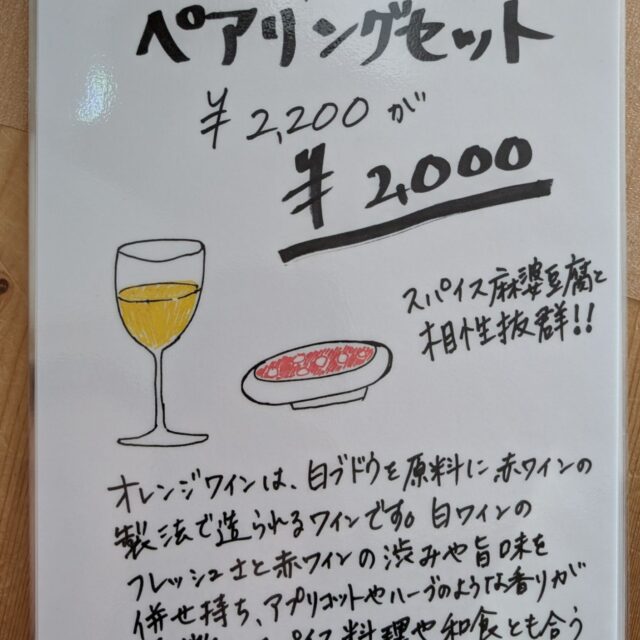 ペアリングセット
¥2,200が
¥2,000
スパイス麻婆豆腐と
相性抜群!!
オレンジワインは、白ブドウを原料に赤ワインの
製法で造られるワインです。白ワインの
フレッシュさと赤ワインの渋みや旨味を
併せ持ち、アプリコットやハーブのような香りが
料理や和食とも合う